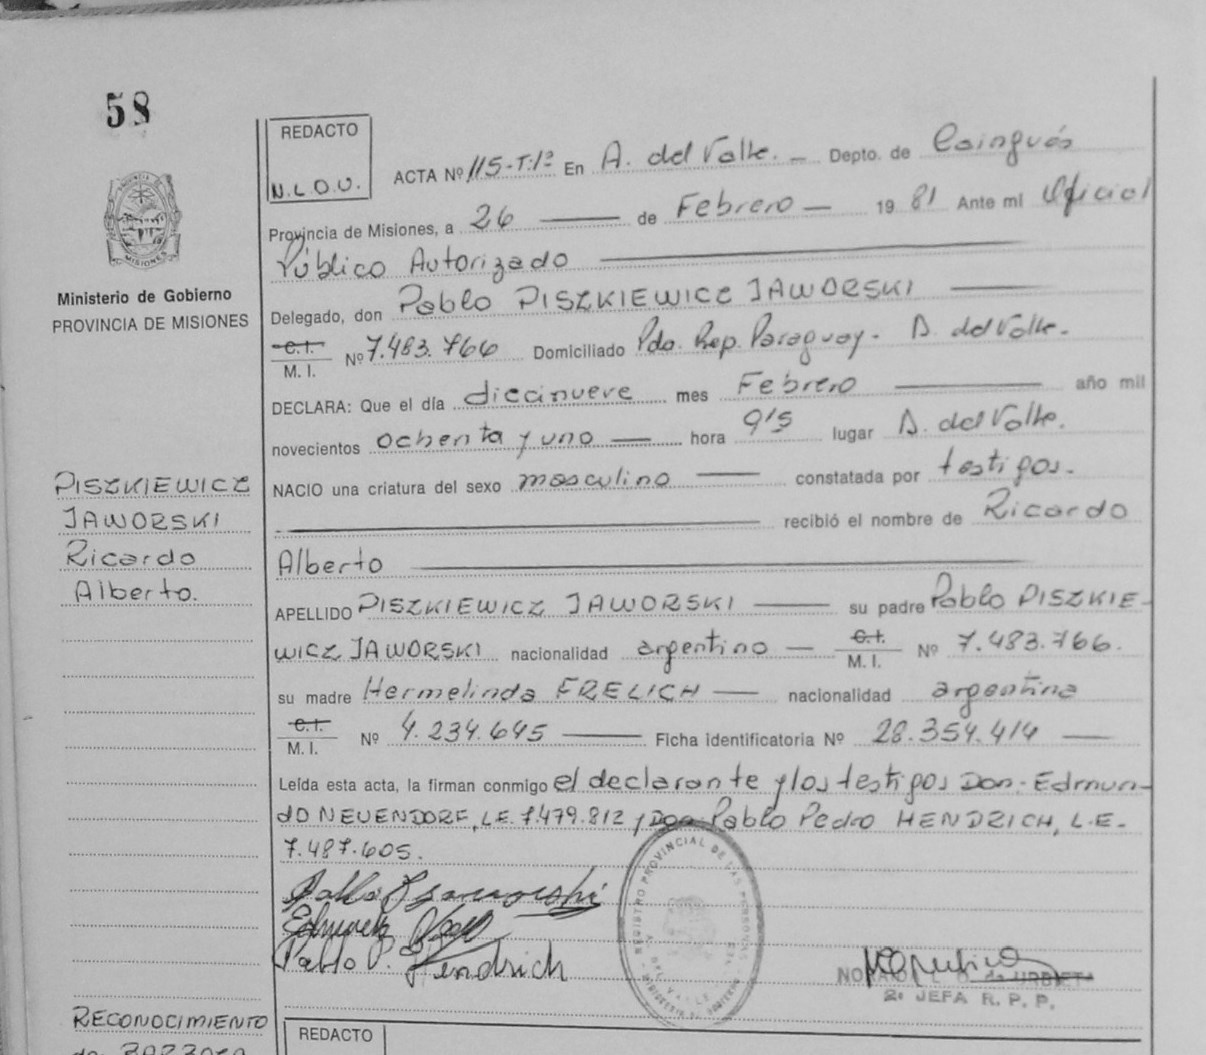 58
REDACTO
N.L.O.U.
ACTA Nº 115-T:1º En A. del Valle. — Depto. de Cainguás
Provincia de Misiones, a 26 — de Febrero — 19 81 Ante mi Oficial
Público Autorizado
Delegado, don Pablo PISZKIEWICZ JAWORSKI
C.I.
M. I. Nº 7.483.766 Domiciliado Pdo. Rep. Paraguay. A. del Valle.
DECLARA: Que el día diecinueve mes Febrero — año mil
novecientos ochenta y uno — hora 9's lugar A. del Valle.
NACIO una criatura del sexo masculino — constatada por testigos.
recibió el nombre de Ricardo
Alberto
APELLIDO PISZKIEWICZ JAWORSKI — su padre Pablo PISZKIE-
WICZ JAWORSKI nacionalidad argentino — C.I. M. I. Nº 7.483.766.
su madre Hermelinda FRELICH — nacionalidad argentina
C.I.
M. I. Nº 4.234.645 — Ficha identificatoria Nº 28.354.414 —
Leída esta acta, la firman conmigo el declarante y los testigos Don. Edmun-
do NEUENDORF, L.E. 7.479.812 y Don Pablo Pedro HENDRICH, L.E.
7.487.605.
Pablo P. Hendrich
REGISTRO PROVINCIAL DE LAS PERSONAS
MINISTERIO DE GOBIERNO
2º JEFA R. P. P.
PROVINCIA
MISIONES
Ministerio de Gobierno
PROVINCIA DE MISIONES
PISZKIEWICZ
JAWORSKI
Ricardo
Alberto.
RECONOCIMIENTO
REDACTO